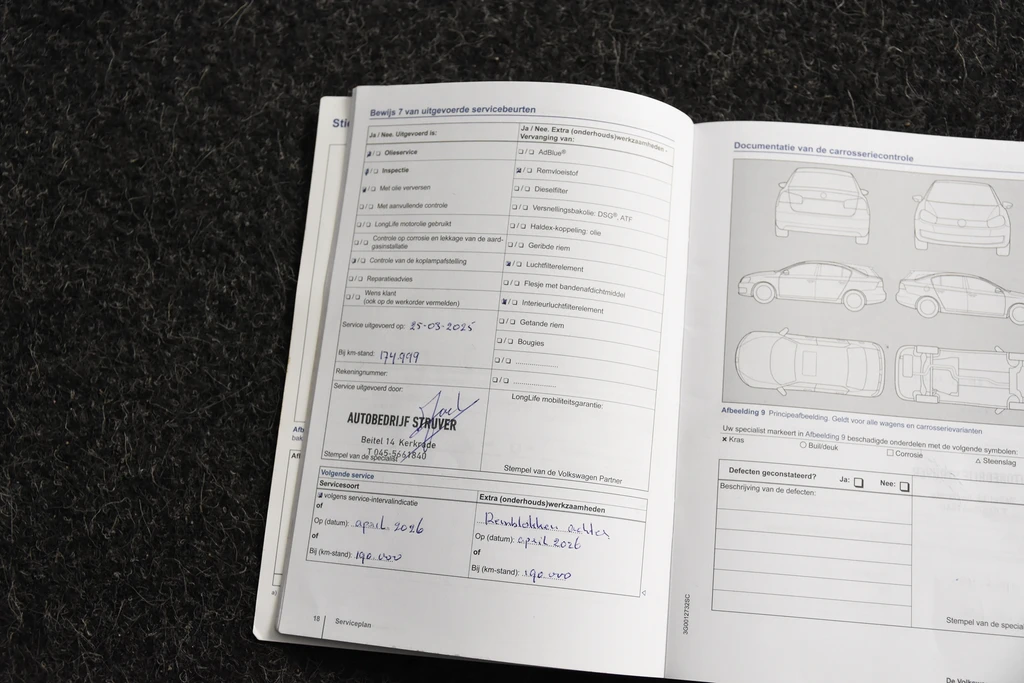 Sti
Bewijs 7 van uitgevoerde servicebeurten
Ja / Nee. Uitgevoerd is:
Olieservice
Inspectie
Met olie verversen
Met aanvullende controle
LongLife motorolie gebruikt
Controle op corrosie en lekkage van de aard-
gasinstallatie
Controle van de koplampafstelling
Reparatieadvies
Wens klant
(ook op de werkorder vermelden)
Service uitgevoerd op: 25-03-2025
Bij km-stand: 174.999
Rekeningnummer:
Service uitgevoerd door:
AUTOBEDRIJF STRUVER
Beitel 14 Kerkrade
T 045-5661840
Stempel van de specialist
Ja / Nee. Extra (onderhouds)werkzaamheden -
Vervanging van:
AdBlue®
Remvloeistof
Dieselfilter
Versnellingsbakolie: DSG®, ATF
Haldex-koppeling: olie
Geribde riem
Luchtfilterelement
Flesje met bandenafdichtmiddel
Interieurluchtfilterelement
Getande riem
Bougies
LongLife mobiliteitsgarantie:
Stempel van de Volkswagen Partner
Volgende service
Servicesoort
volgens service-intervalindicatie
of
Op (datum): april 2026
of
Bij (km-stand): 190.000
Extra (onderhouds)werkzaamheden
Remblokken achter
Op (datum): april 2026
of
Bij (km-stand): 190.000
18 Serviceplan
Documentatie van de carrosseriecontrole
Afbeelding 9 Principeafbeelding. Geldt voor alle wagens en carrosserievarianten
Uw specialist markeert in Afbeelding 9 beschadigde onderdelen met de volgende symbolen:
× Kras ○ Buil/deuk □ Corrosie △ Steenslag
Defecten geconstateerd? Ja: Nee:
Beschrijving van de defecten:
Stempel van de specia
3G0012732SC
De Volksw